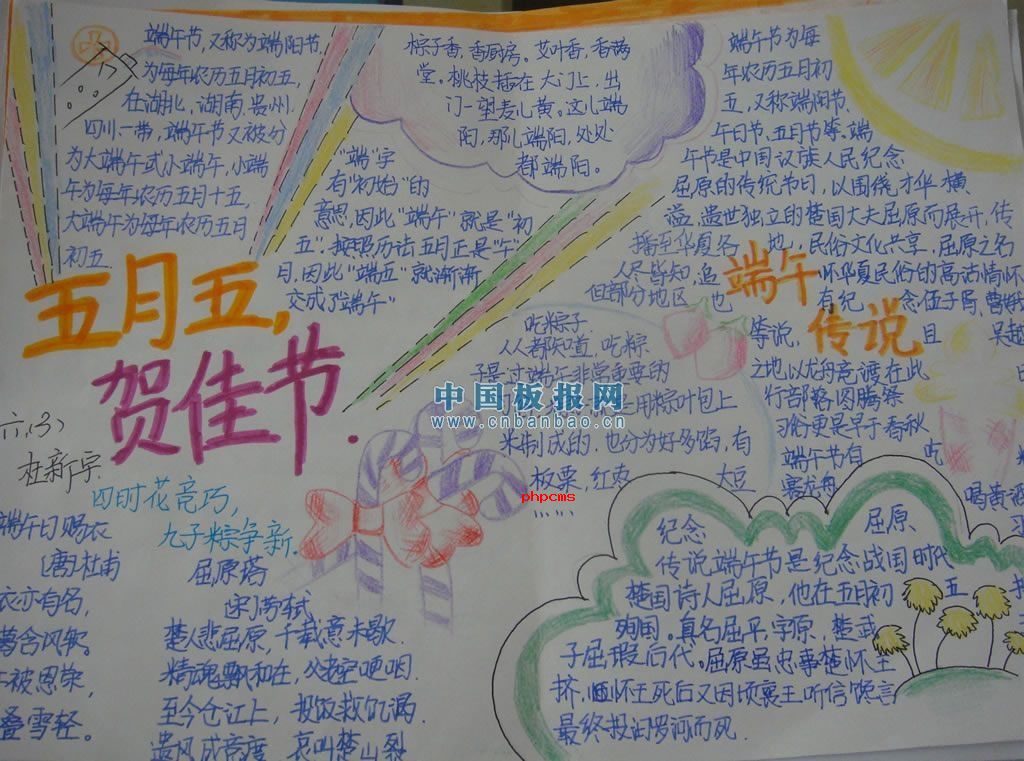 端午节,又称为端阳节,
为每年农历五月初五,
在湖北,湖南.贵州.
四川一带,端午节又被分
为大端午或小端午,小端
午为每年农历五月十五,
大端午为每年农历五月
初五
"端"字
有"初始"的
意思,因此"端午"就是"初
五".按照历法五月正是"午"
月,因此"端五"就渐渐
变成了"端午"
粽子香,香厨房。艾叶香,香满
堂。桃枝插在大门上,出
门一望麦儿黄。这儿端
阳,那儿端阳,处处
都端阳。
端午节为每
年农历五月初
五,又称端阳节.
午日节、五月节等、端
午节是中国汉族人民纪念
屈原的传统节日,以围绕才华横
溢、遗世独立的楚国大夫屈原而展开,传
播至华夏各地,民俗文化共享,屈原之名
人尽皆知,追怀华夏民俗的高洁情怀
但部分地区也有纪念伍子胥,曹娥
等说,且吴越
之地,以龙舟竞渡在此
行部落图腾祭
习俗更是早于春秋
端午节有
吃
赛龙舟
喝黄酒
习
五月五,
贺佳节.
端午
传说
吃粽子
人人都知道,吃粽
子是过端午非常重要的
用粽叶包上
米制成的.也分为好多馅,有
板栗,红枣
大豆
......
中国板报网
www.cnbanbao.cn
phpcms
六.(3)
杜新宇
四时花竞巧,
九子粽争新.
端午日赐衣
[唐]杜甫
衣亦有名,
葛含风软。
被恩荣,
叠雪轻。
屈原塔
[宋]苏轼
楚人悲屈原,千载意未歇.
精魂飘何在,父老空哽咽.
至今仓江上,投饭救饥渴.
遗风成竞度,哀叫楚山裂
纪念
屈原
传说端午节是纪念战国时代
楚国诗人屈原,他在五月初五
殉国。真名屈平,字原,楚武
子屈瑕后代。屈原虽忠事楚怀王
挤,怀王死后又因顷襄王听信馋言
最终投汨罗河而死.